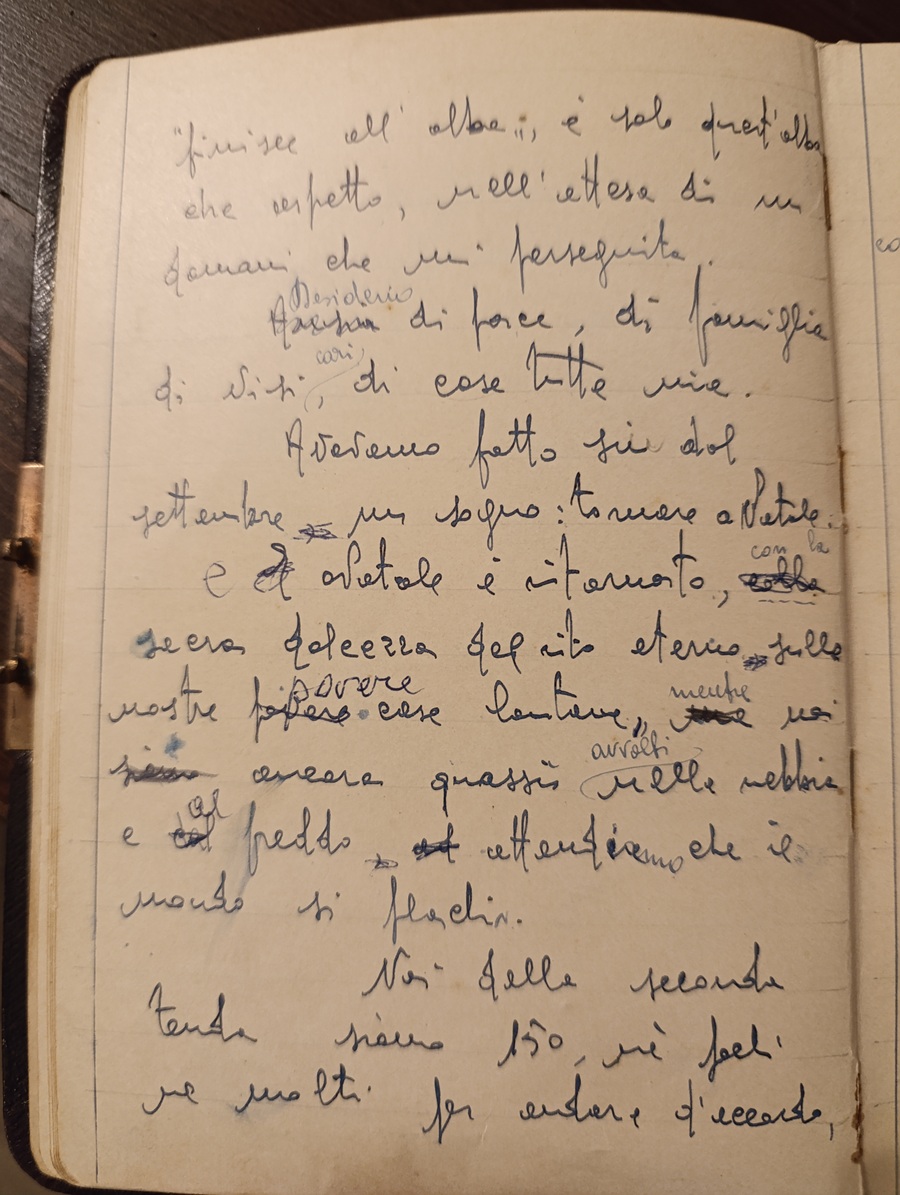 "finisce all'alba", è solo quest'alba
che aspetto, nell'attesa di un
domani che mi perseguita.
Desiderio
di pace, di famiglia
cari
di visi, di cose tutte mie.
Avevamo fatto sin dal
settembre un sogno: tornare a Natale.
con la
E Natale è ritornato, colla
sacra dolcezza del rito eterno sulle
povere mentre
nostre povere case lontane, ma noi
avvolti
siamo ancora quassù nella nebbia
al
e col freddo, attendiamo che il
mondo si plachi.
Noi della seconda
tenda siamo 150, nè pochi
ne molti per andare d'accordo,